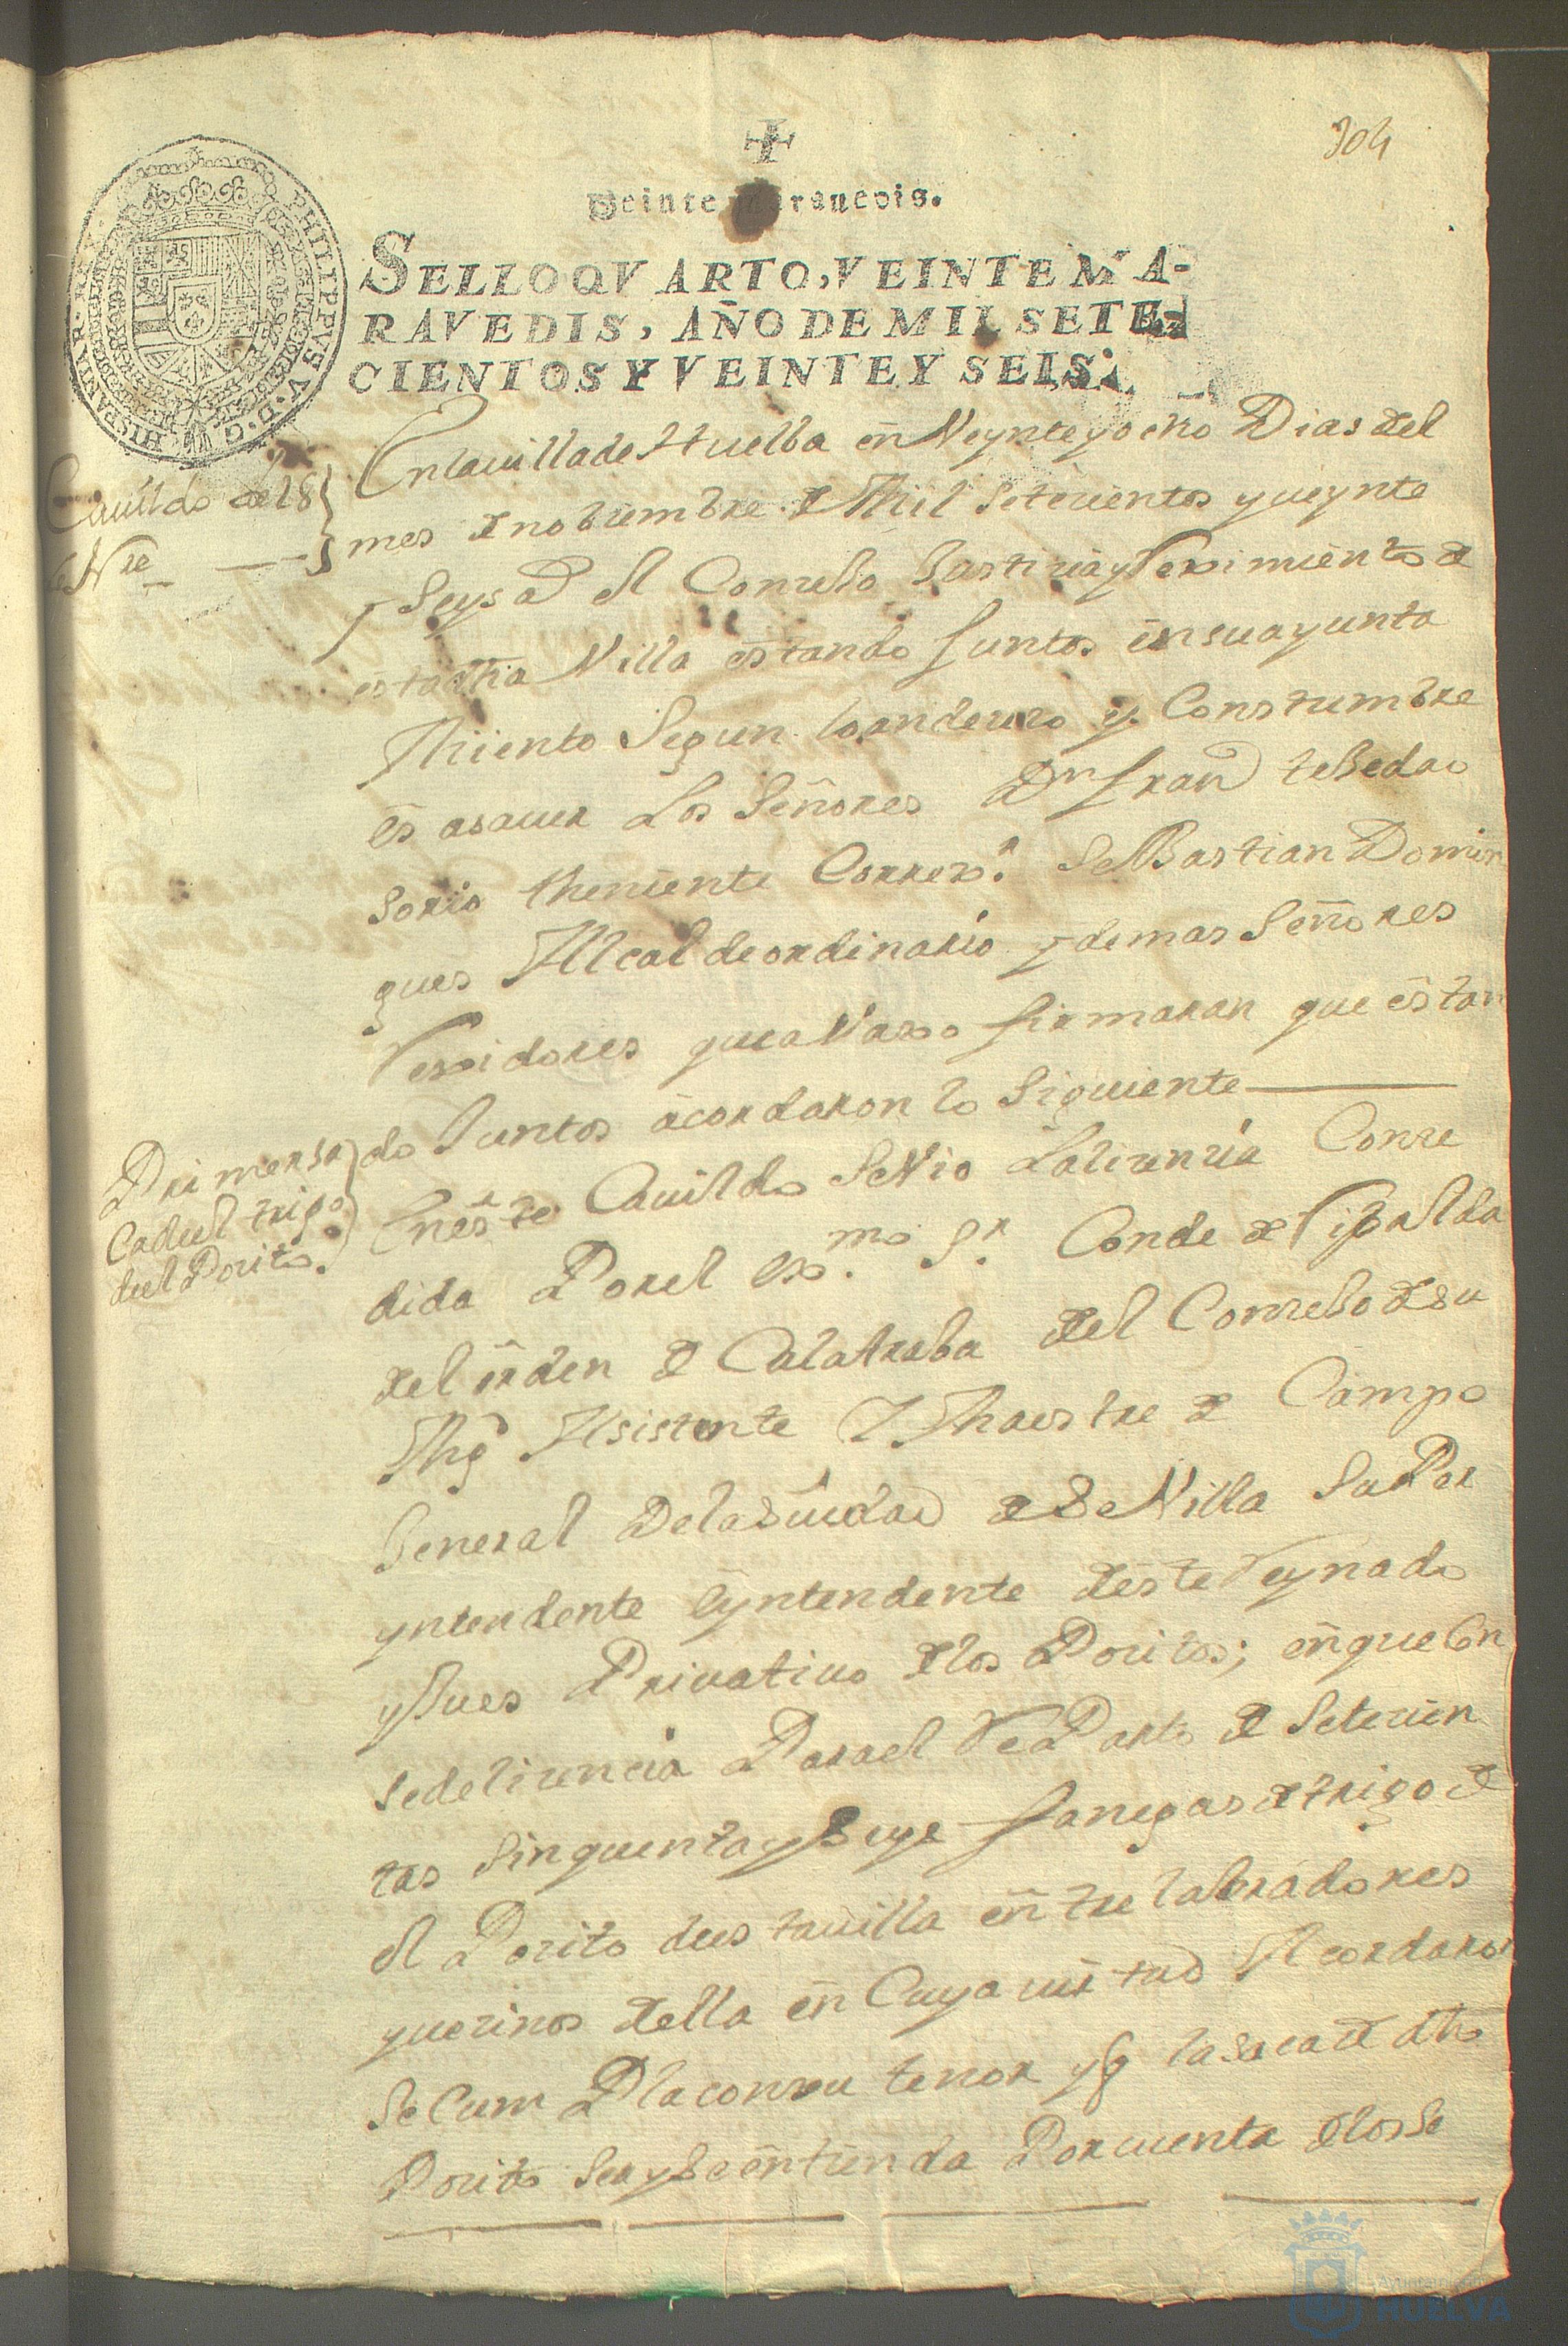 304
Veinte maravedis.
SELLO QVARTO, VEINTE MA-
RAVEDIS, AÑO DE MIL SETE-
CIENTOS Y VEINTE Y SEIS.
PHILIPPUS V. D. G. HISPANIAR. REX
Cauildo de 28
de Nre
En la uilla de Huelba en Veynte y ocho Dias del
mes de nobiembre de Mill Setecientos y ueynte
y Seys a El Consejo Justicia y Reximiento de
esta dha Villa estando Juntos en su ayunta
Miento Segun lo an de uzo y Constumbre
es asauer Los Señores Dn Fran
sorio theniente Correxr. SeBastian Domin
gues Alcalde ordinario y demas Señores
Rexidores que aVaxo firmaran que estan
do Juntos acordaron lo Siguiente
Primer sa
ca del trigo
del Pocito.
En este Cauildo SeVio La licencia Conce
dida Por el exmo. Sr. Conde de Ripalda
del orden de Calatraba del Consejo de su
Mgd Asistente Y Maestre de Campo
General De la Siudad de SeVilla SuPer
yntendente E yntendente deste Reynado
y Jues Priuatiuo de los Pocitos; en que Con
sede licencia Para el ReParto de Setecien
tas Sinquenta y Seys fanegas de trigo de
el Pocito de esta uilla entre labradores
y uecinos della en Cuya uirtud Acordaron
Se CumPla con su tenor y q la saca de dho
Pocito Ser y Se entienda Por cuenta de los Se
Ayuntamiento de
HUELVA